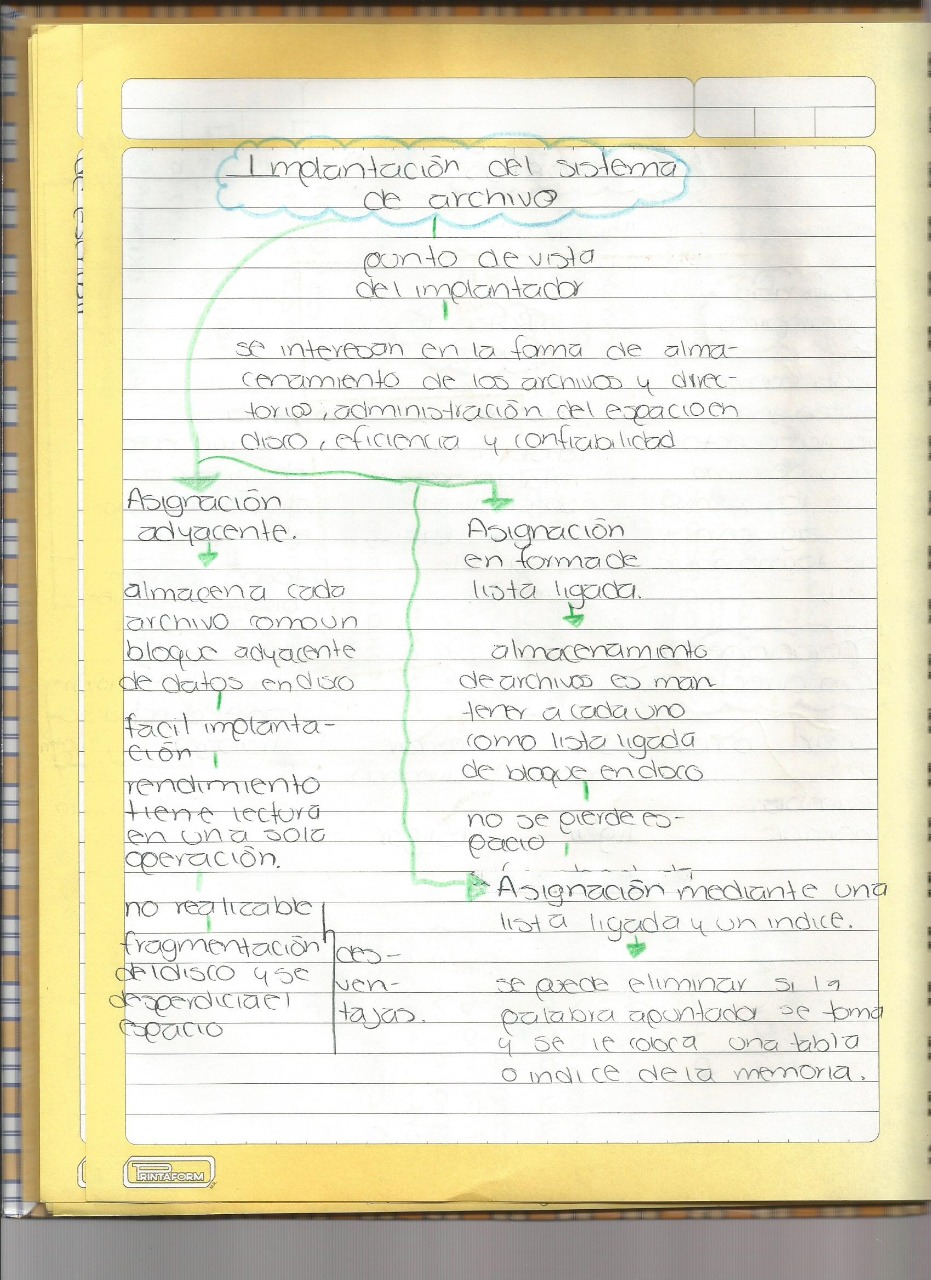 Implantación del sistema
de archivo
punto de vista
del implantador
se interesan en la forma de alma-
cenamiento de los archivos y direc-
torios, administración del espacio en
disco, eficiencia y confiabilidad
Asignación
adyacente.
almacena cada
archivo como un
bloque adyacente
de datos en disco
facil implanta-
ción
rendimiento
tiene lectura
en una sola
operación.
no realizable
fragmentación
del disco y se
desperdicia el
espacio
des-
ven-
tajas.
Asignación
en forma de
lista ligada.
almacenamiento
de archivos es man
tener a cada uno
como lista ligada
de bloque en disco
no se pierde es-
pacio
Asignación mediante una
lista ligada y un indice.
se puede eliminar si la
palabra apuntador se toma
y se le coloca una tabla
o indice de la memoria.
PRINTAFORM